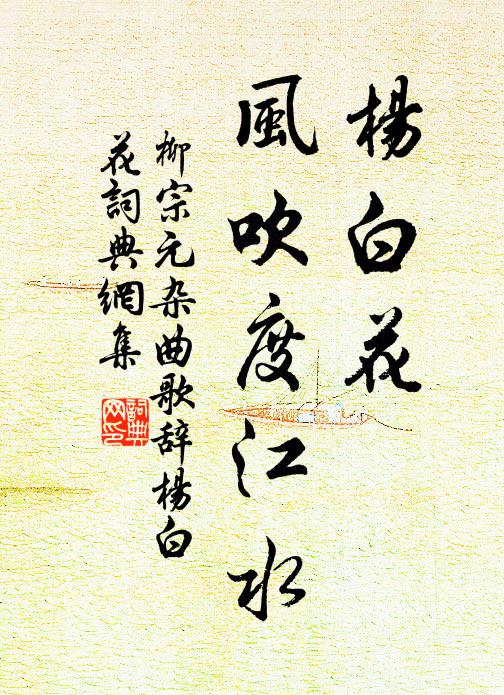 楊白花
風吹度江水
柳宗元杂曲歌辞楊白
花詞典網集
詞典
网印